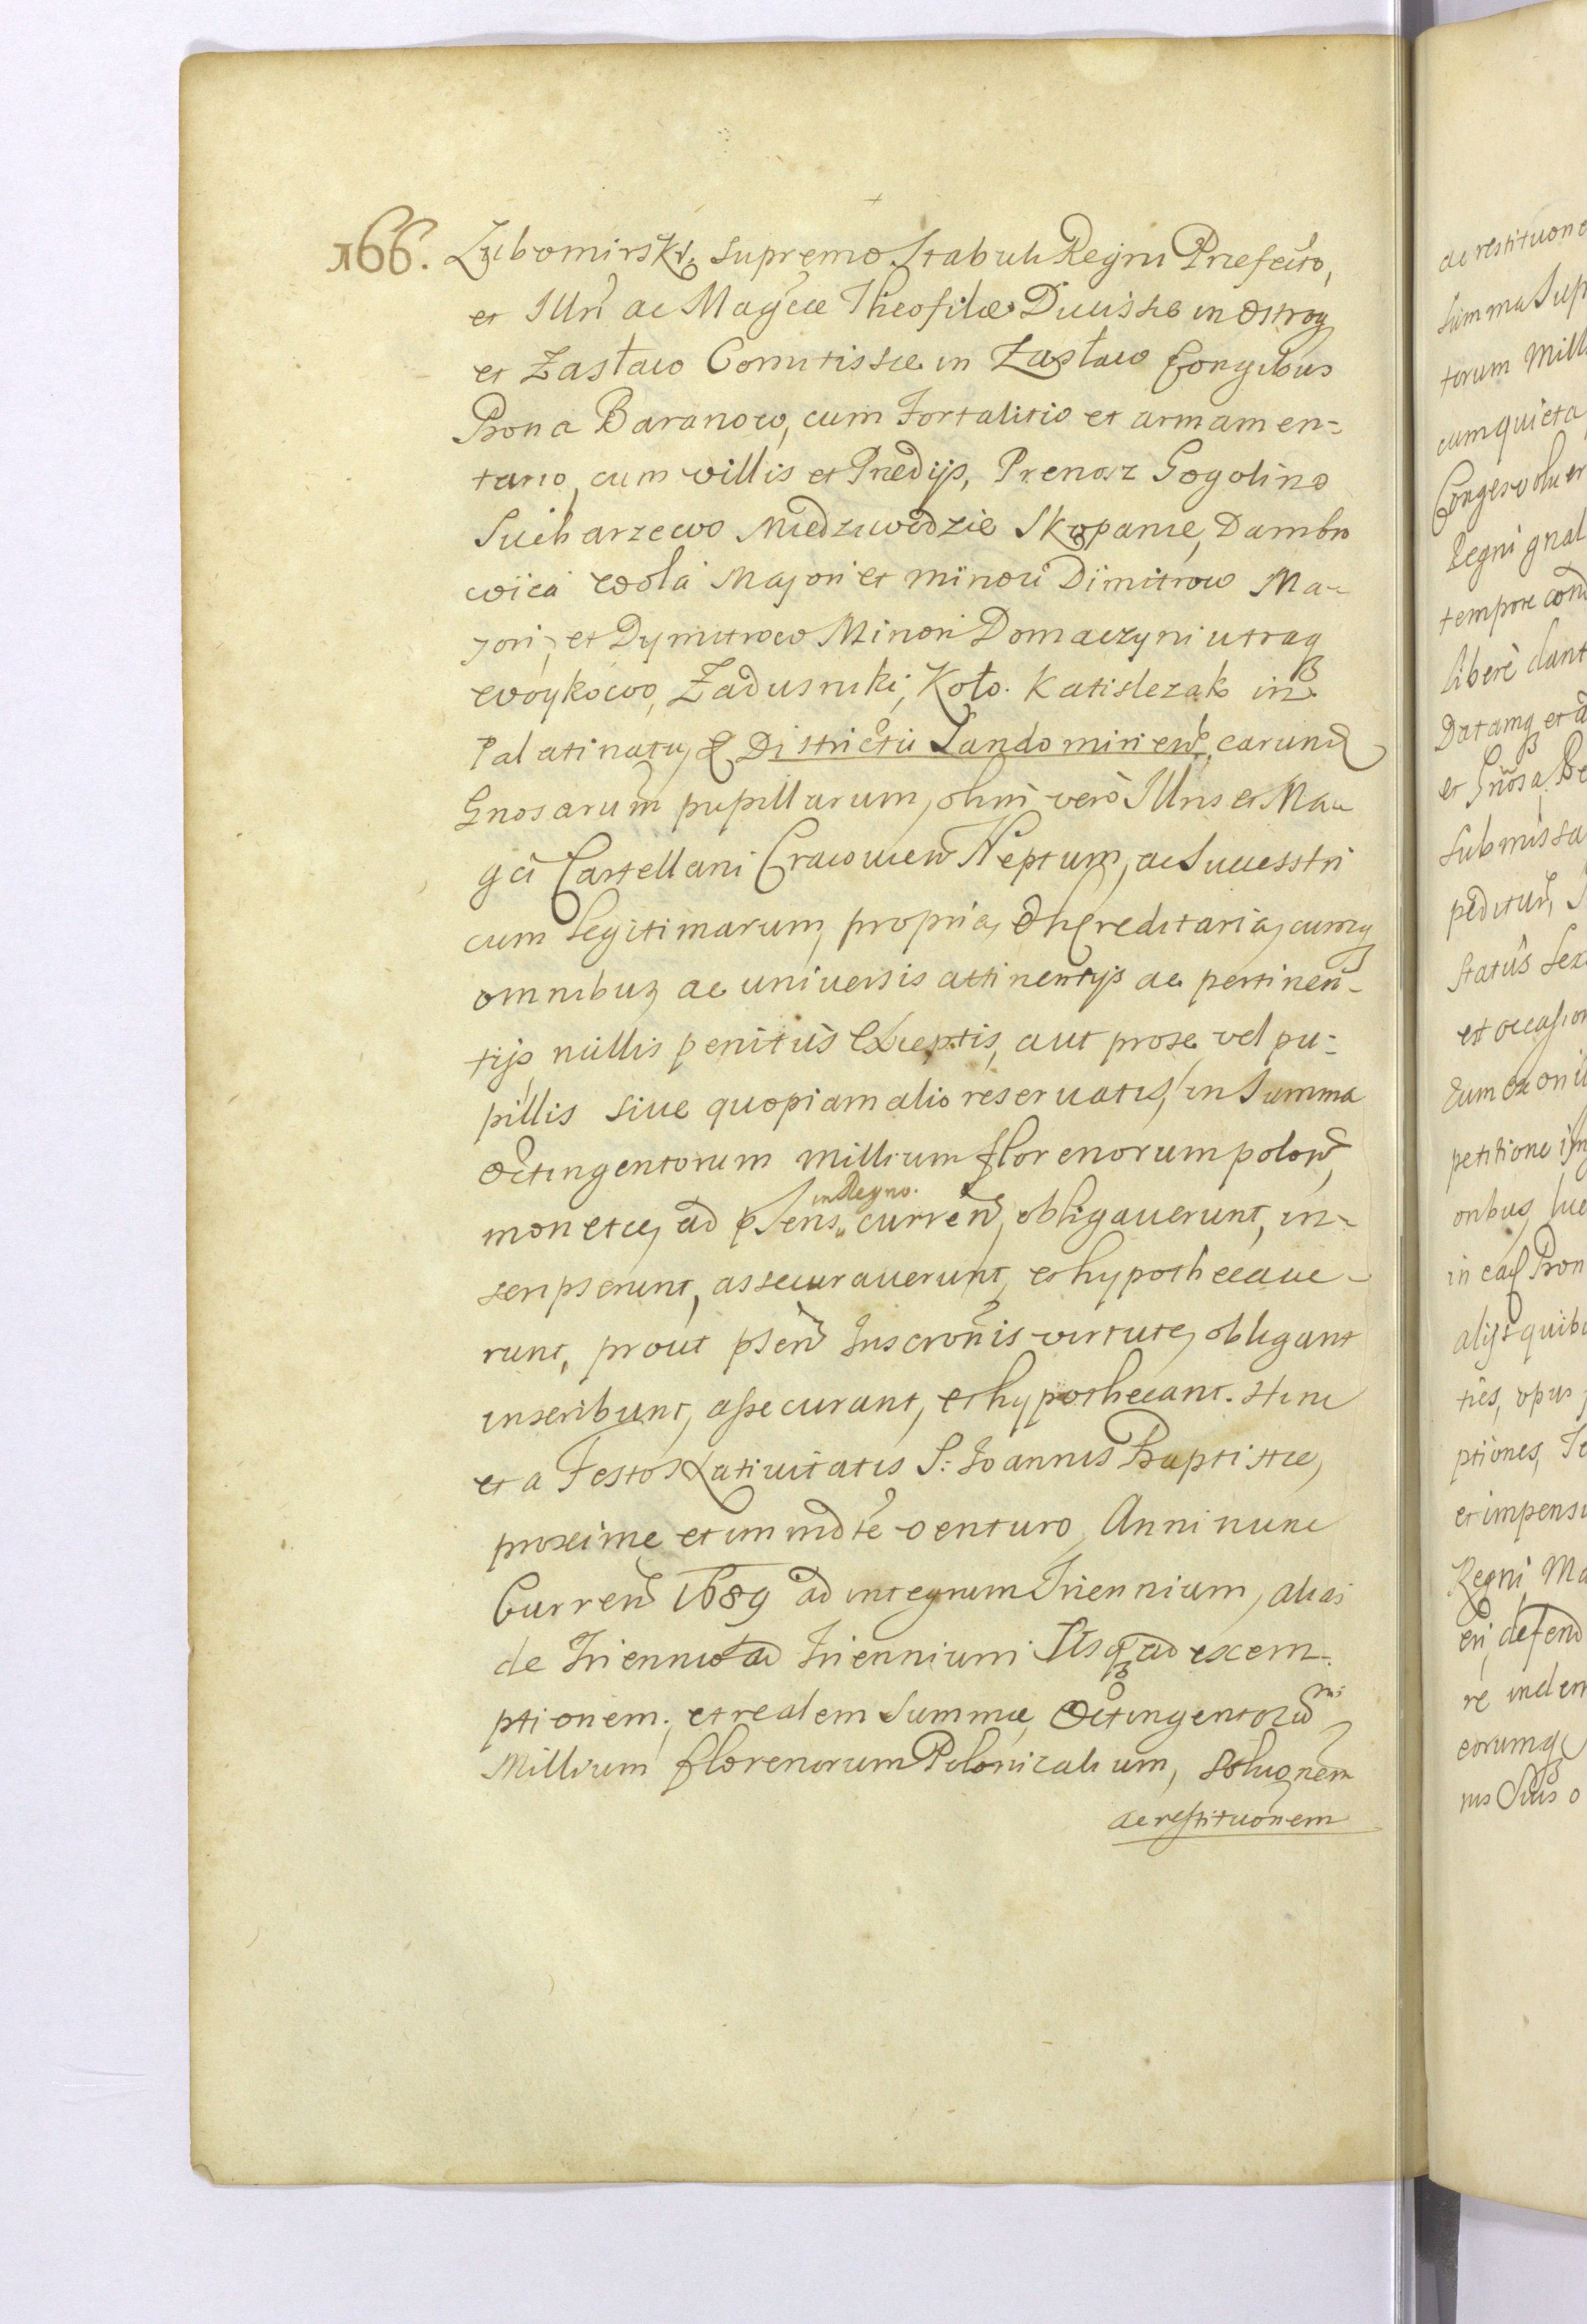 166. Lubomirski, Supremo Stabuli Regni Præfecto,
et Illri ac Magcæ Theofilæ Ducissæ in Ostrog
et Zasław Comitissæ in Zasław Congibus
Bona Baranow, cum Fortalitio et armamen-
tario, cum villis et Prædijs, Prenosz Gogolino
Sucharzewo Niedzwiedzie Skopanie, Dambro
wica Wola Majori et minori Dimitrow Ma-
jori, et Dymitrow Minori Domaczyni utraq
Woykowo, Zadusniki, Koło. Katislezak in
Palatinatu, & Districtu Sandomirien, earund
Gnosarum pupillarum, olim vero Illris et Ma-
gci Castellani Cracovien Neptum, ac Successtri
cum Legitimarum, propria, & hæreditaria, cumq
omnibus ac universis attinentijs ac pertinen-
tijs nullis penitus exceptis, aut pro se vel pu-
pillis sive quopiam alio reservatis, in Summa
Octingentorum millium florenorum polon,
monetæ, ad psens in Regno. curren, obligaverunt, in-
scripserunt, assecuraverunt, et hypothecave-
runt, prout psen Inscronis virtute, obligant
inscribunt, assecurant, et hypothecant. Hinc
et a Festo Nativitatis S: Joannis Baptistæ,
proxime et immdte venturo, Anni nunc
Curren 1689 ad integrum Triennium, alias
de Triennio ad Triennium Usq ad exem-
ptionem, et realem Summæ, Octingentorum
Millium florenorum Polonicalium, Solugnem
ac restituonem
ac restituone
Summa Sup
torum Mill
cum quieta
Conges volue
Regni gnal
tempore cond
libere dant
Datamq et a
Submissa
Status
et occasion
petitione
onbus,
in ead Bon
alijs quib
opus
ptiones,
et impens
Regni, Ma
defend
re indem
eorumq